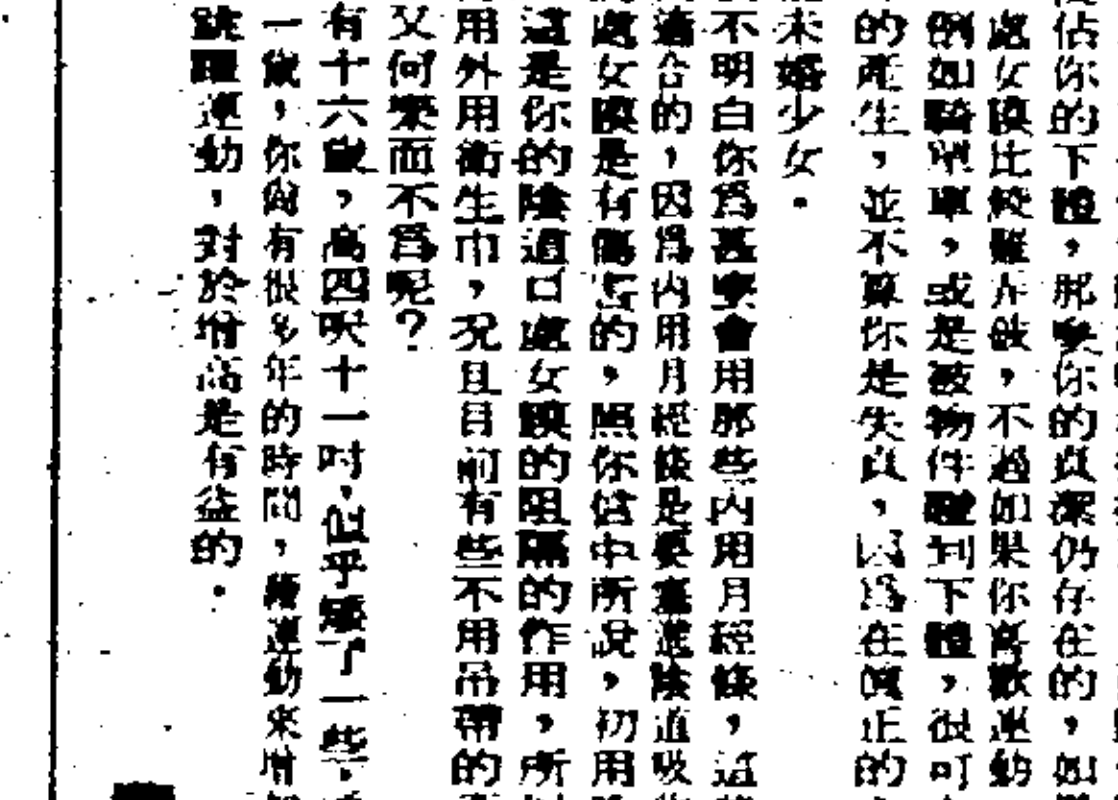 佔你的下體，那麼你的貞潔仍存在的，如
處女膜比較難弄破，不過如果你喜歡運動
例如騎單車，或是被物件碰到下體，很可
的產生，並不算你是失貞，因爲在眞正的
未婚少女．
不明白你爲甚麼會用那些內用月經條，這
適合的，因爲內用月經條是要塞進陰道吸
處女膜是有傷害的，照你信中所說，初用
這是你的陰道口處女膜的阻隔的作用，所
用外用衞生巾，况且目前有些不用吊帶的
又何樂而不爲呢？
有十六歲，高四呎十一吋，似乎矮了一些，
一歲，你尙有很多年的時間，藉運動來增
跳躍運動，對於增高是有益的．